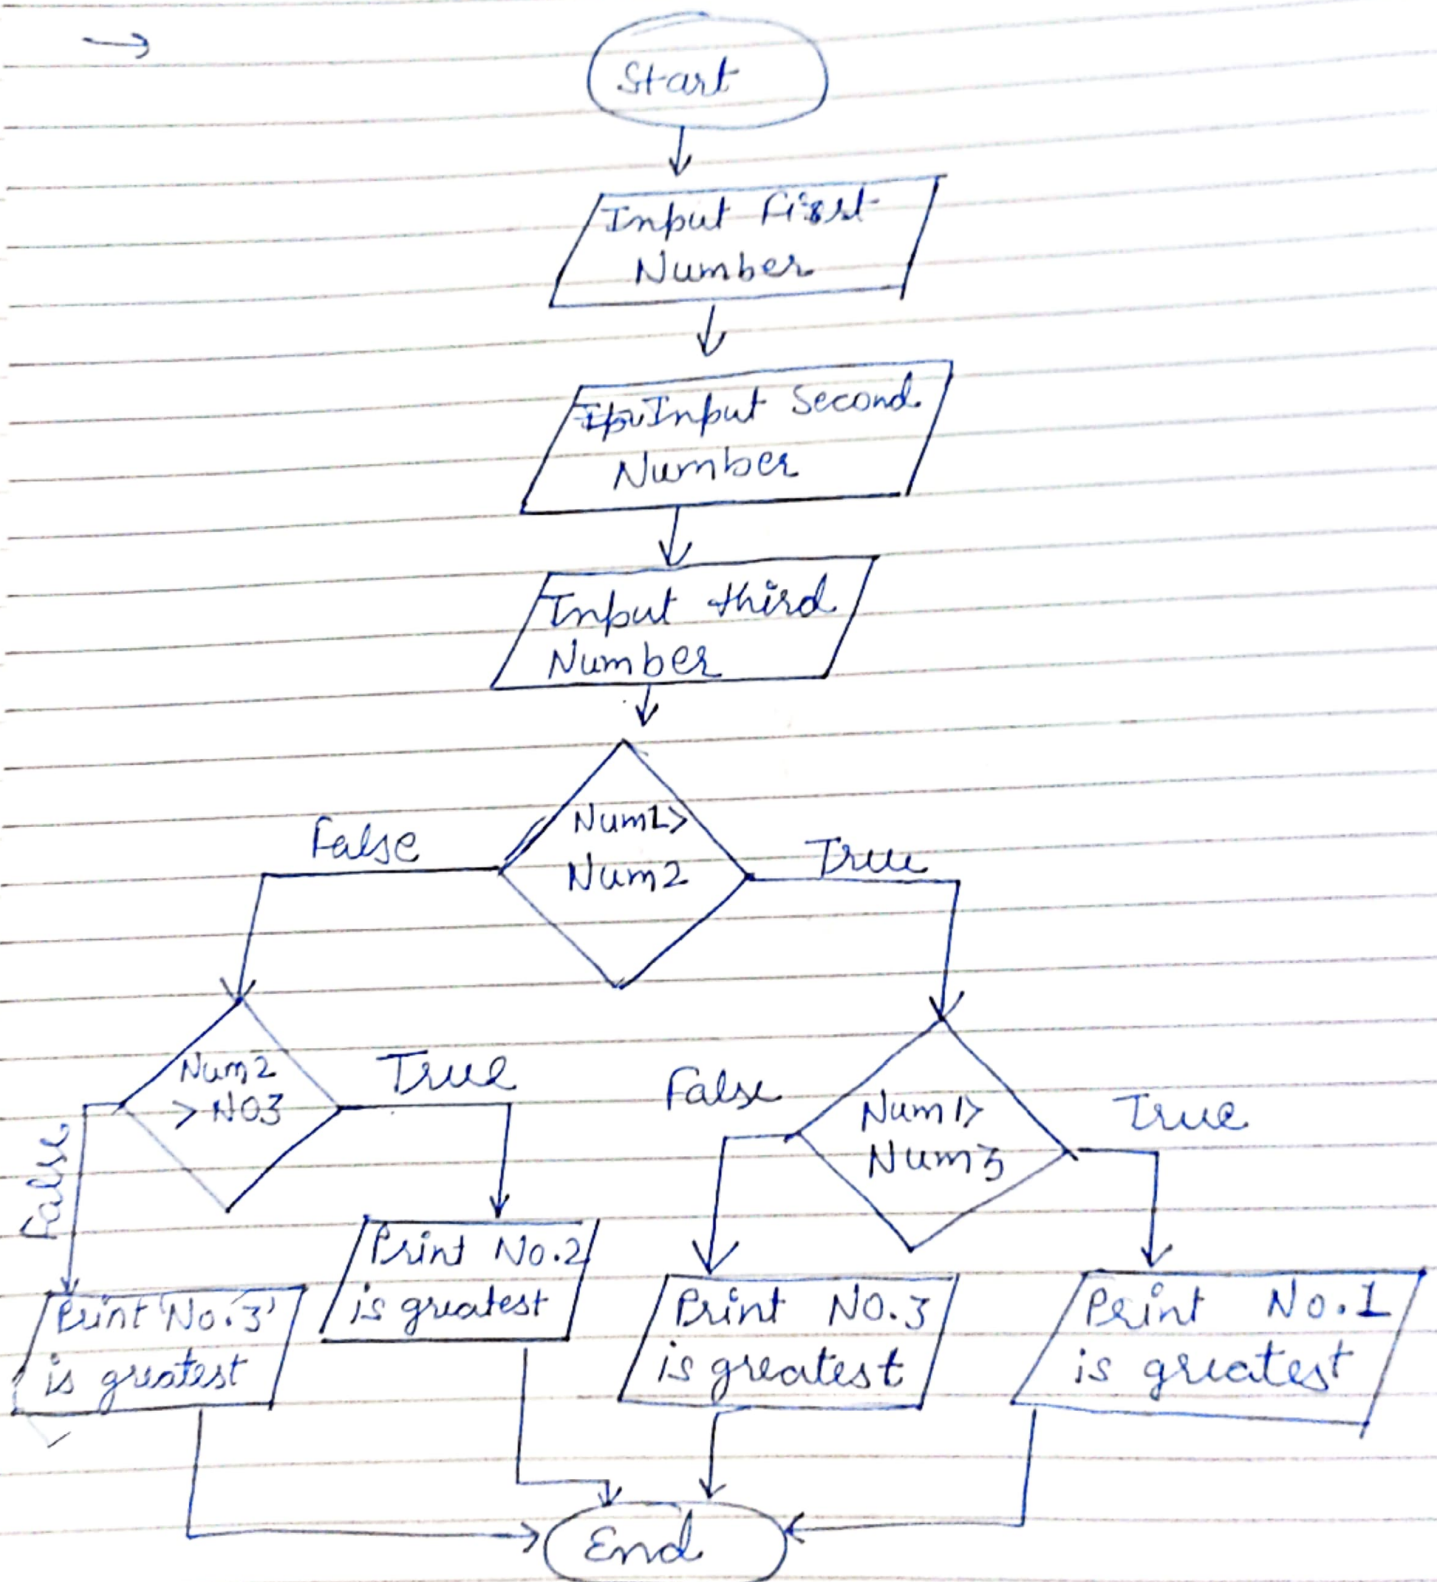 Start
Input First
Number
Input Second
Number
Input third
Number
Num1>
Num2
False
True
Num2
> NO3
True
False
False
Num1>
Num3
True
Print No.2
is greatest
Print 'No.3'
is greatest
Print NO.3
is greatest
Print No.1
is greatest
End